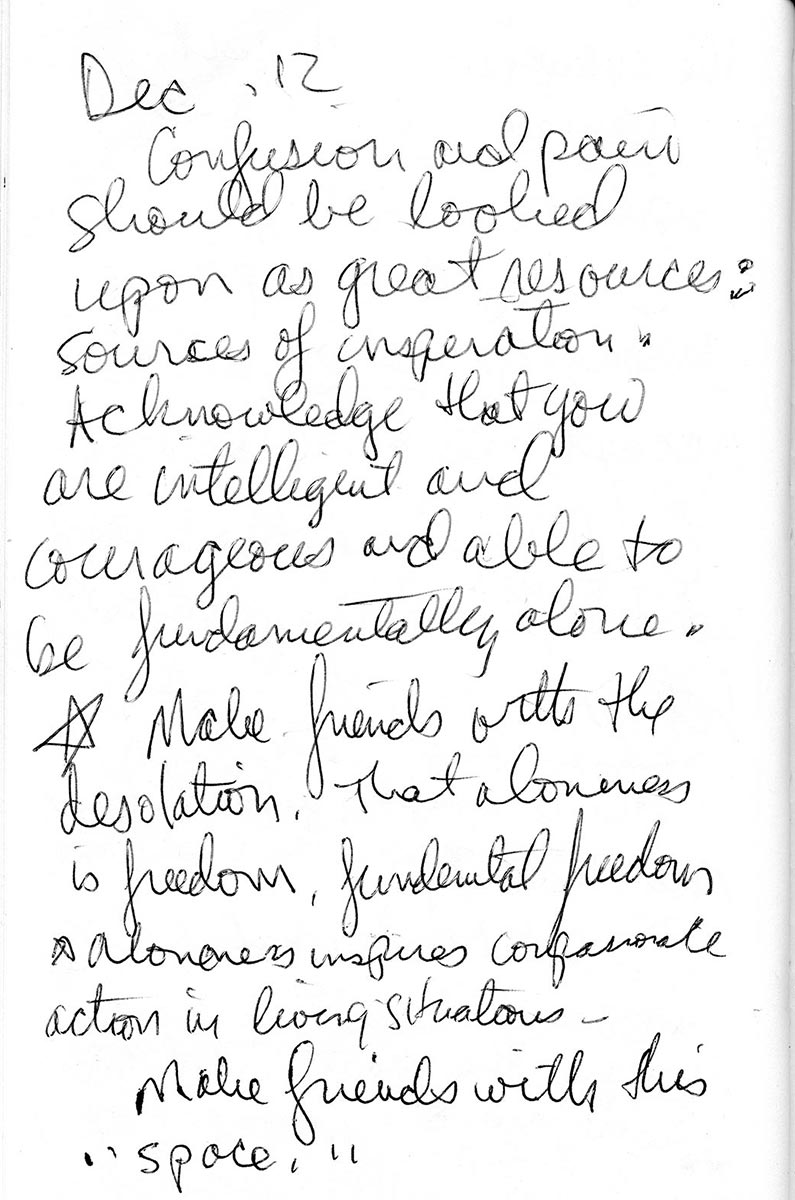 Dec. 12
Confusion and pain
should be looked
upon as great resources:
sources of insperation.
Acknowledge that you
are intelligent and
courageous and able to
be fundamentally alone.
☆ Make friends with the
desolation. That aloneness
is freedom, fundemtal freedom
☆ aloneness inspires compasionate
action in living situations –
Make friends with this
"space."